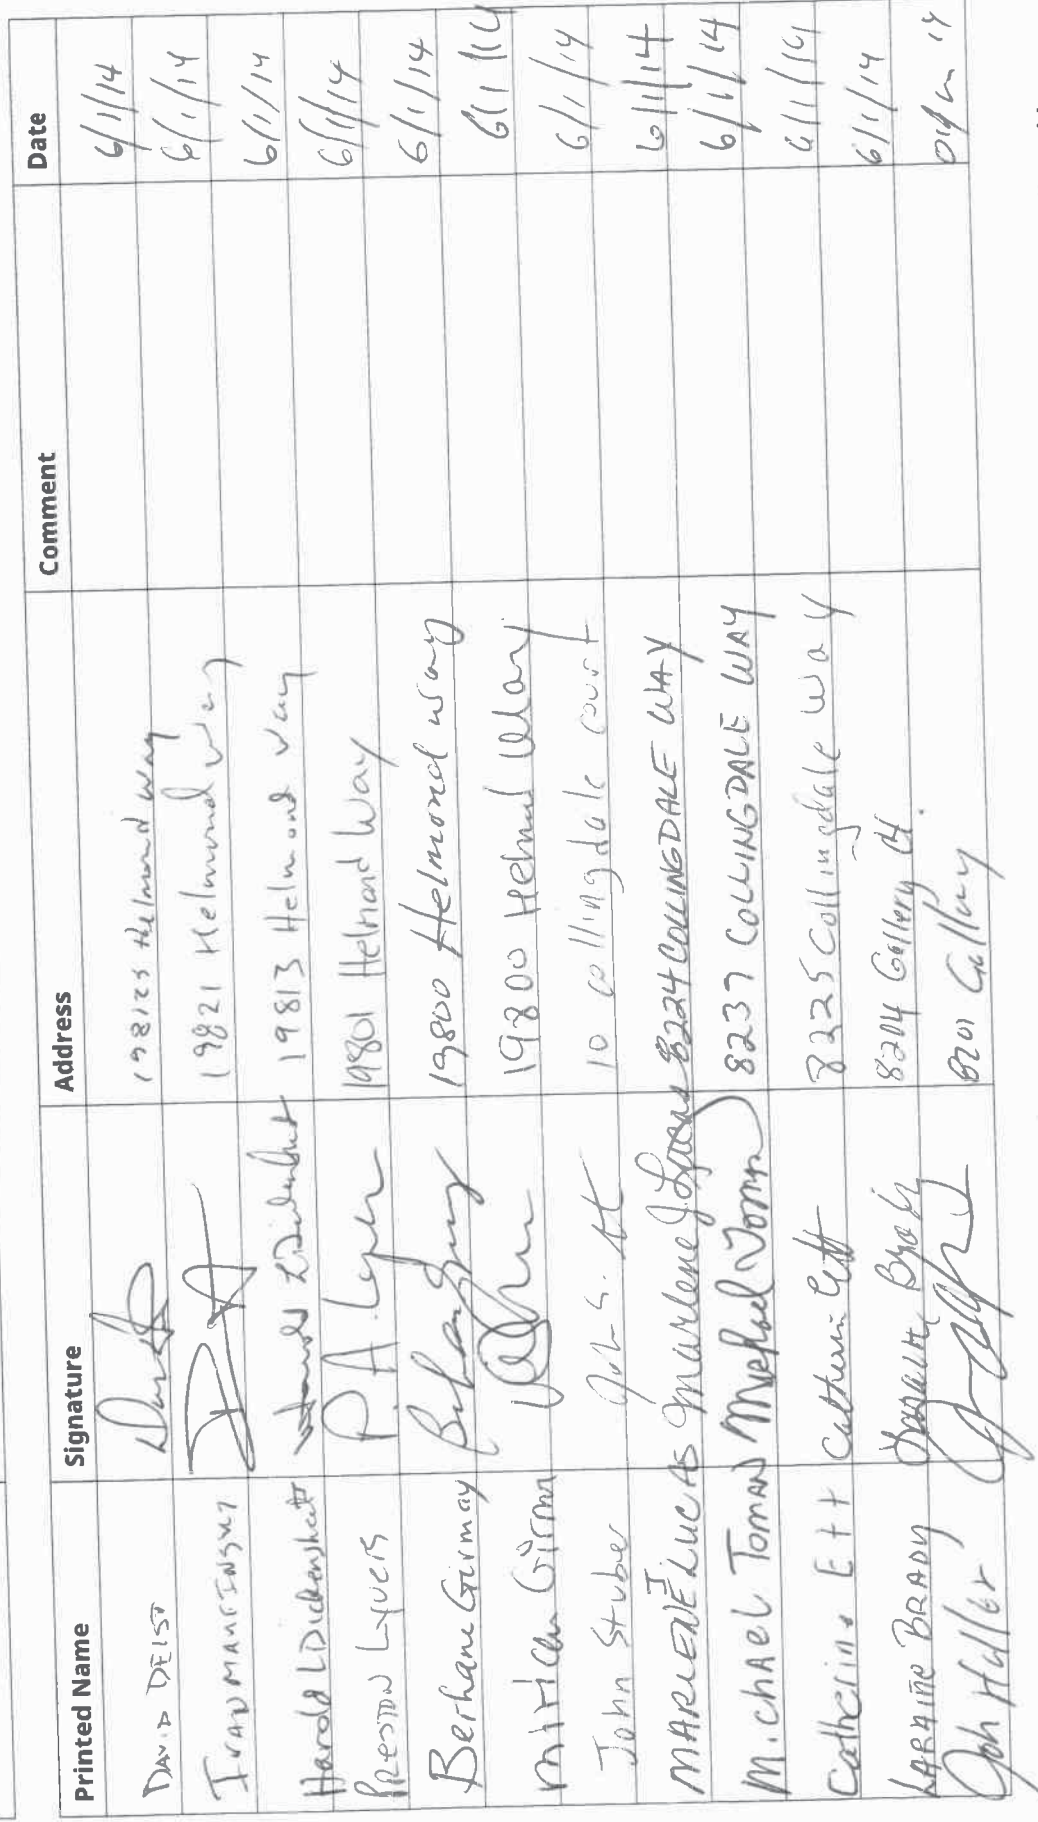 Printed Name Signature Address Comment Date
DAVID DEIST 198125 Helmond way 6/1/14
IVAN 19821 Helmond way 6/1/14
Harold L Dickenshett 19813 Helmond Way 6/1/14
PRESTON Lyvers P. A. Lyver 19801 Helmond Way 6/1/14
Berhane Girmay 19800 Helmond way 6/1/14
Girma 19800 Helmd Way 6/1/14
John Stuber 10 collingdale court 6/1/14
MARLENE J LUCAS Marlene J. Lucas 8224 COLLINGDALE WAY 6/1/14
MichAEL TOMAN Michael Toman 8237 COLLINGDALE WAY 6/1/14
Catherine Ett Catherine Ett 8225 Collingdale Way 6/1/14
LARAINE BRADY Laraine Brady 8204 Gallery Ct. 6/1/14
Jon Haller 8201 Gallery